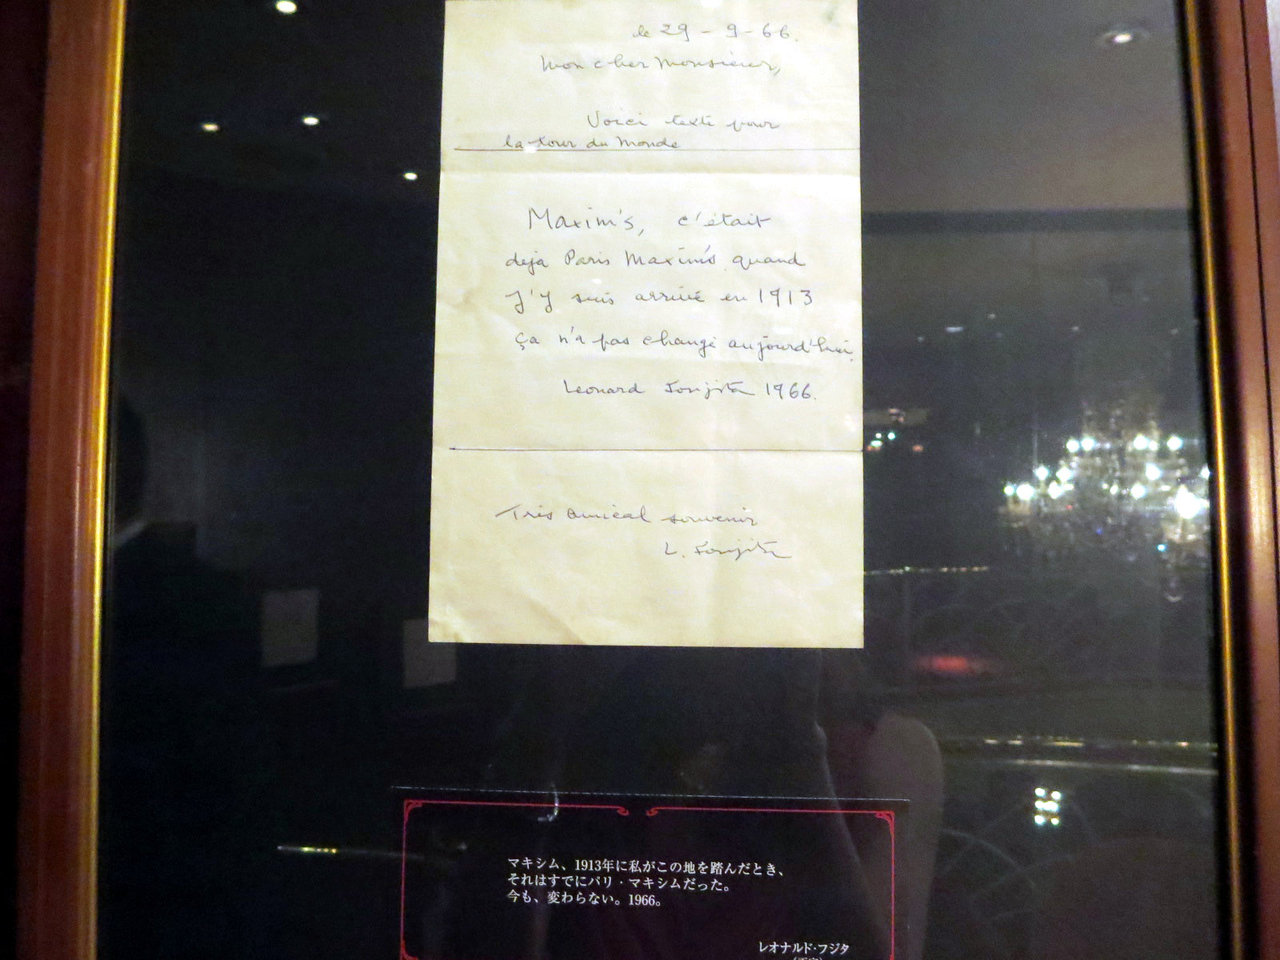 le 29-9-66.
Mon cher Monsieur,
Voici texte pour
la tour du Monde
Maxim's, c'était
déjà Paris Maxim's quand
J'y suis arrivé en 1913
ça n'a pas changé aujourd'hui.
Leonard Foujita 1966.
Très amical souvenir
L. Foujita
マキシム、1913年に私がこの地を踏んだとき、
それはすでにパリ・マキシムだった。
今も、変わらない。1966。
レオナルド・フジタ